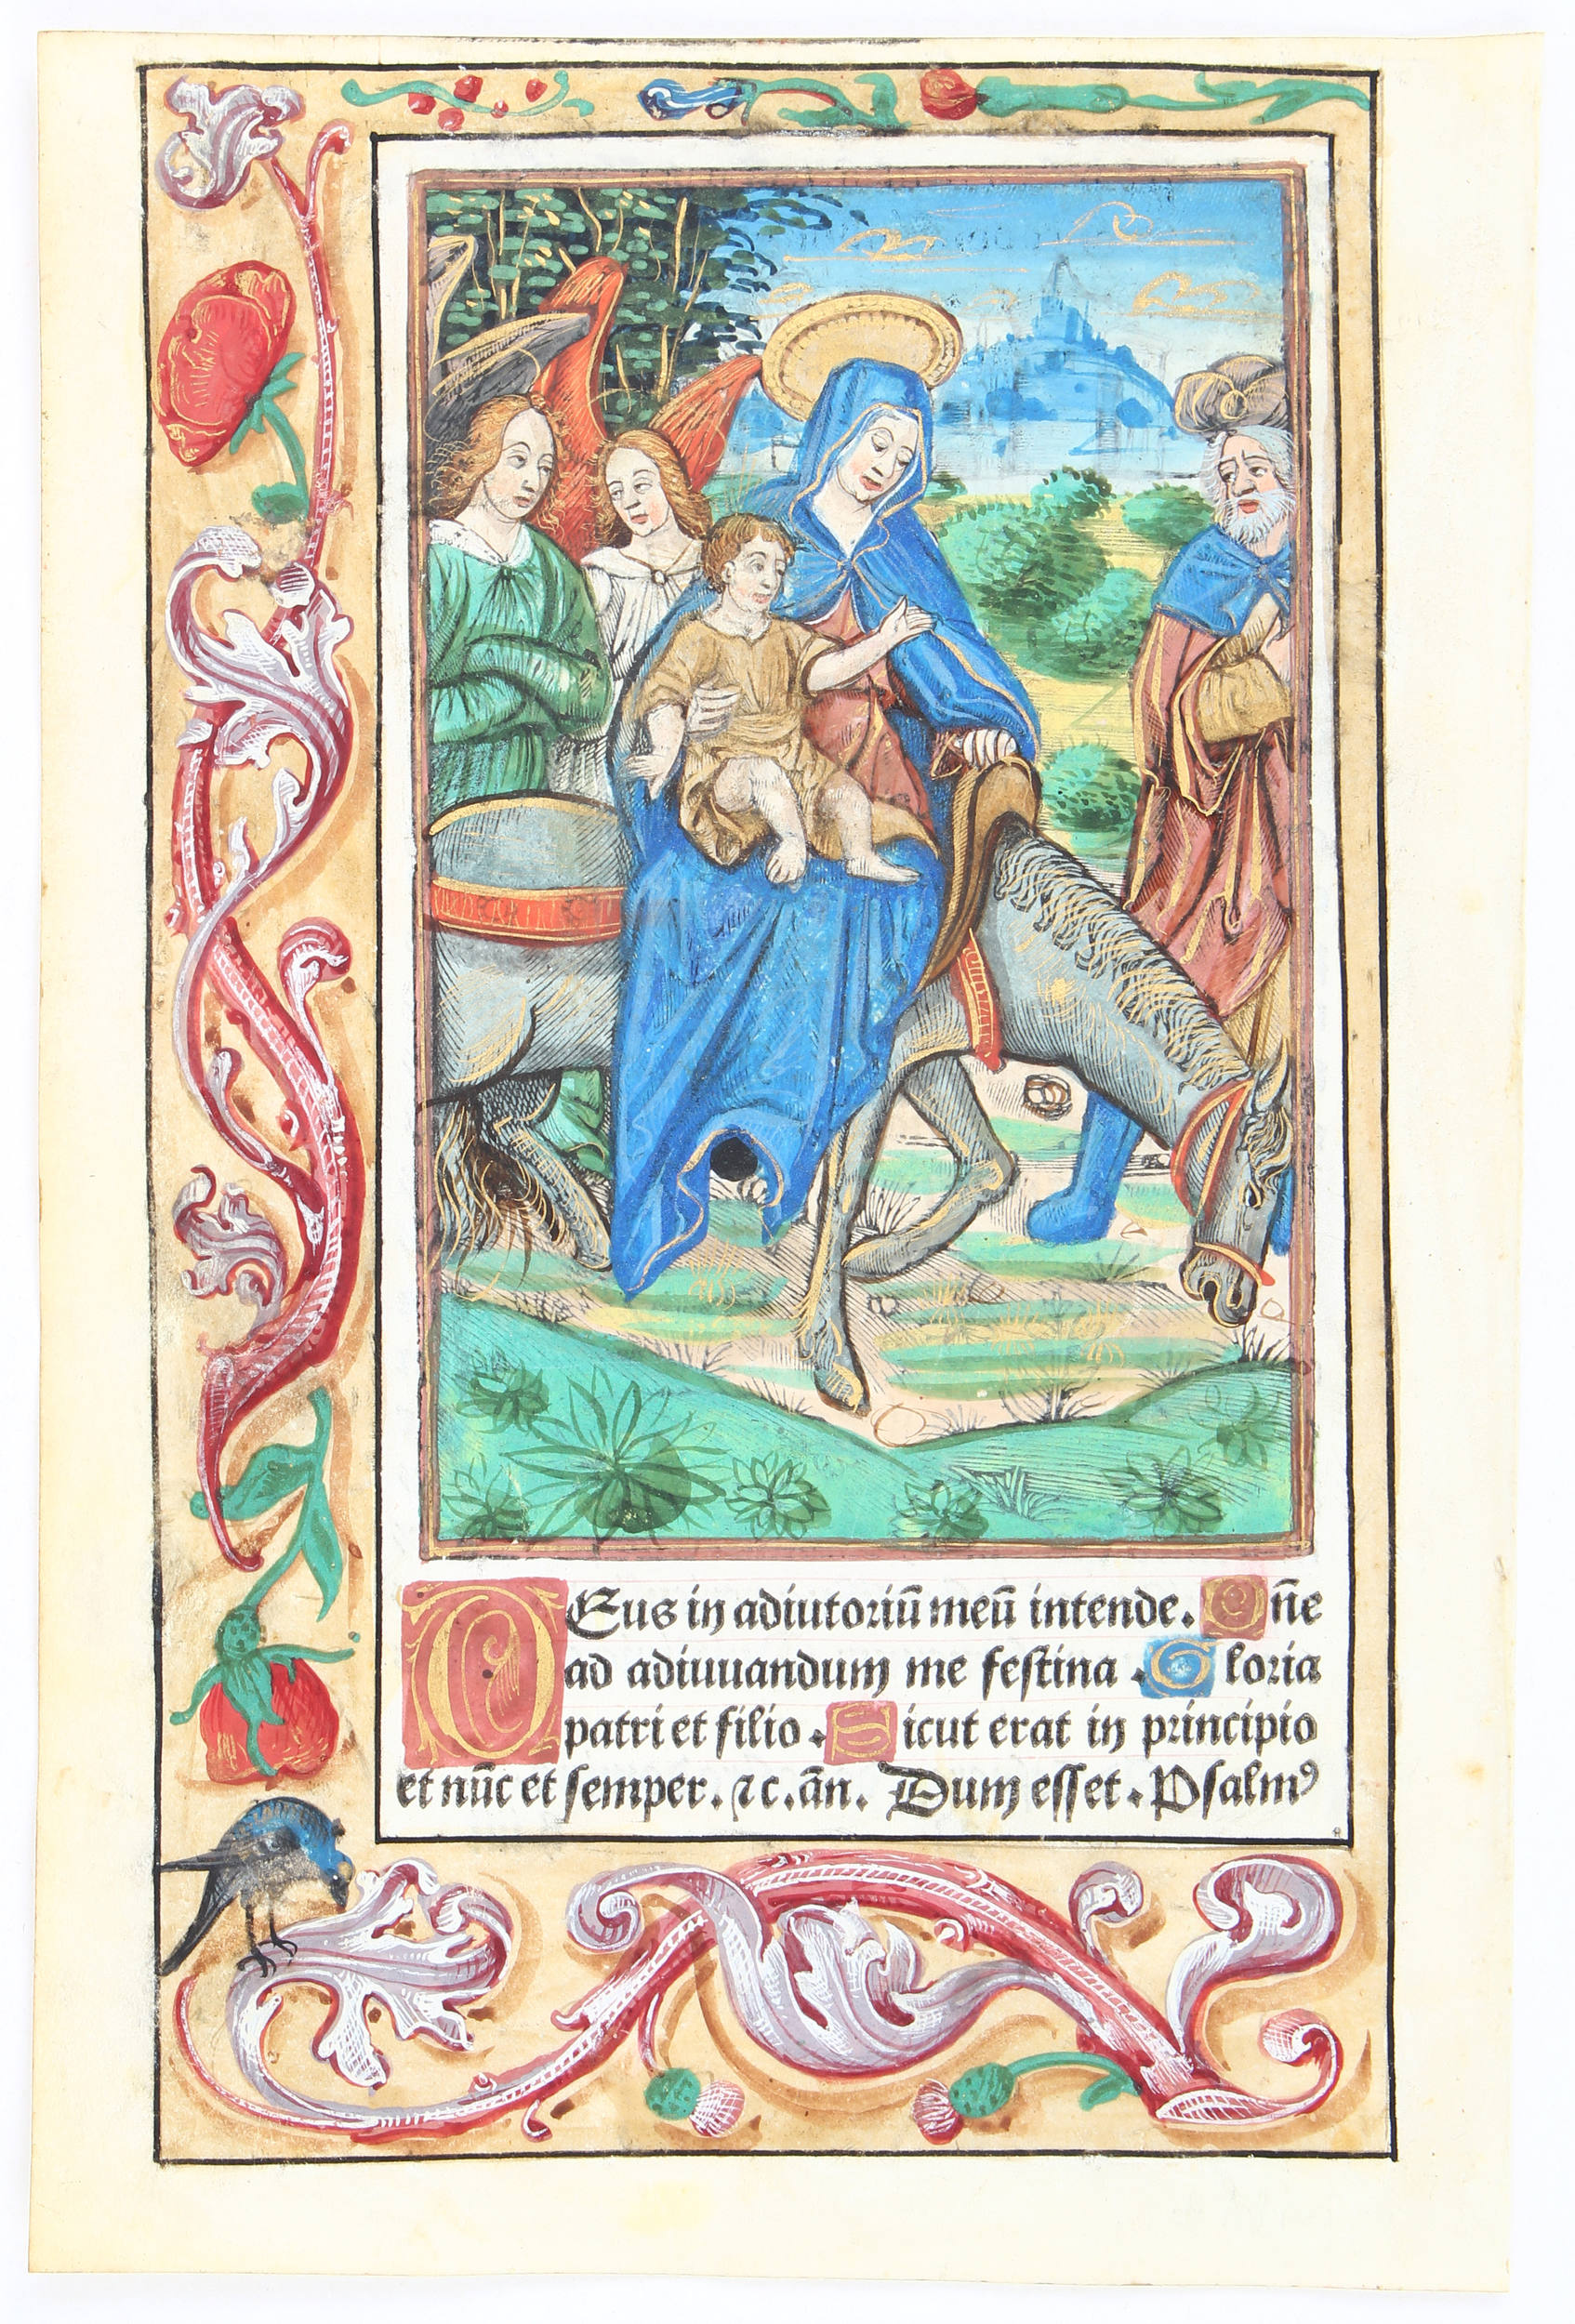 DEus in adiutoriū meū intende. Dn̄e
ad adiuuandum me festina. Gloria
patri et filio. Sicut erat in principio
et nūc et semper. ⁊c. ān. Dum esset. Psalmꝰ